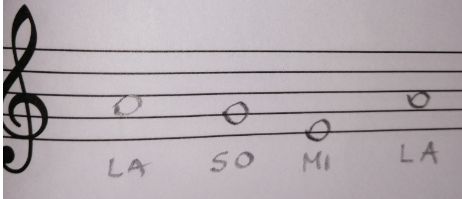 LA SO MI LA